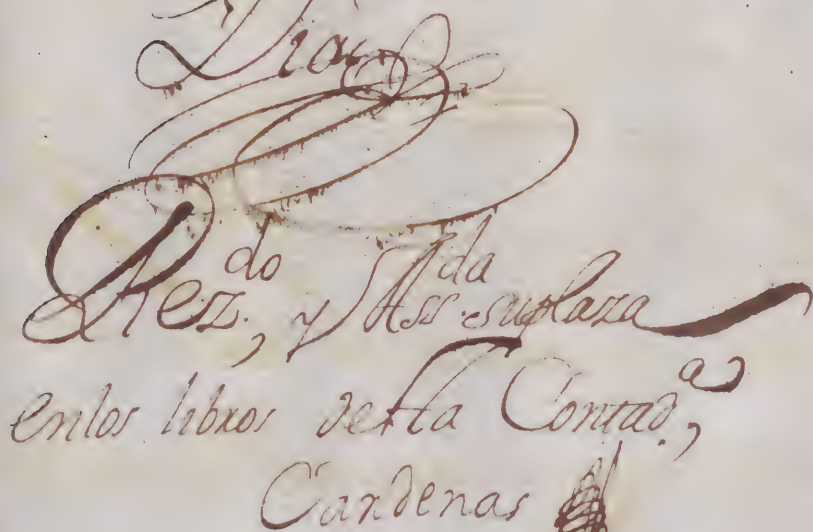 Diaz
Rez.^do, y Ass.^da suplaza
Enlos libros desta Contad.^a,
Cardenas